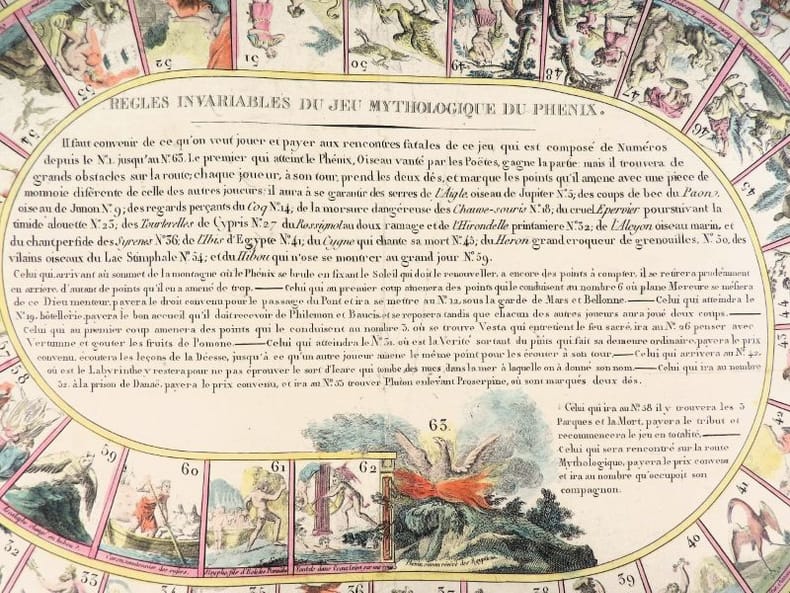 REGLES INVARIABLES DU JEU MYTHOLOGIQUE DU PHENIX.
Il faut convenir de ce qu'on veut jouer et payer aux rencontres fatales de ce jeu qui est composé de Numéros
depuis le N.º1. jusqu'au Nº.63. Le premier qui atteint le Phénix, Oiseau vanté par les Poëtes, gagne la partie: mais il trouvera de
grands obstacles sur la route; chaque joueur, à son tour, prend les deux dés, et marque les points qu'il amène avec une pièce de
monnoie différente de celle des autres joueurs; il aura à se garantir des serres de l'Aigle, oiseau de Jupiter Nº.5; des coups de bec du Paon,
oiseau de Junon Nº.9; des regards perçants du Coq Nº.14; de la morsure dangéreuse des Chauve-souris Nº.18; du cruel Epervier poursuivant la
timide alouette Nº.23, des Tourterelles de Cypris Nº.27 du Rossignol au doux ramage et de l'Hirondelle printaniere Nº.32; de l'Alcyon oiseau marin, et
du chant perfide des Syrenes Nº.36; de l'Ibis d'Egypte Nº.41; du Cygne qui chante sa mort Nº.45; du Heron grand croqueur de grenouilles, Nº.50, des
vilains oiseaux du Lac Stimphale Nº.54; et du Hibou qui n'ose se montrer au grand jour Nº.59.
Celui qui, arrivant au sommet de la montagne où le Phénix se brule en fixant le Soleil qui doit le renouveller, a encore des points à compter, il se retirera prudemment
en arriere, d'autant de points qu'il en a amené de trop. — Celui qui au premier coup amenera des points qui le conduisent au nombre 6 où plane Mercure se méfiera
de ce Dieu menteur, payera le droit convenu pour le passage du Pont et ira se mettre au Nº.12, sous la garde de Mars et Bellonne. — Celui qui atteindra le
Nº.19, hôtellerie, payera le bon accueil qu'il doit recevoir de Philemon et Baucis, et se reposera tandis que chacun des autres joueurs aura joué deux coups. —
Celui qui au premier coup amenera des points qui le conduisent au nombre 3, où se trouve Vesta qui entretient le feu sacré, ira au Nº.26 penser avec
Vertumne et gouter les fruits de Pomone. — Celui qui atteindra le Nº.31, où est la Verité sortant du puits qui fait sa demeure ordinaire, payera le prix
convenu, écoutera les leçons de la Déesse, jusqu'à ce qu'un autre joueur amène le même point pour les écouter à son tour. — Celui qui arrivera au Nº.42,
où est le Labyrinthe y restera pour ne pas éprouver le sort d'Icare qui tombe des nues dans la mer à laquelle on a donné son nom. — Celui qui ira au nombre
52, à la prison de Danaë, payera le prix convenu, et ira au Nº.53 trouver Pluton enlevant Proserpine, où sont marqués deux dés.
Celui qui ira au Nº.58 il y trouvera les 3
Parques et la Mort, payera le tribut et
recommencera le jeu en totalité. —
Celui qui sera rencontré sur la route
Mythologique, payera le prix convenu
et ira au nombre qu'occupoit son
compagnon.
54
52
51
50
49
48
47
46
45
58
59
60
61
62
63.
Caron, nautonnier des enfers.
32
33
38
39
40